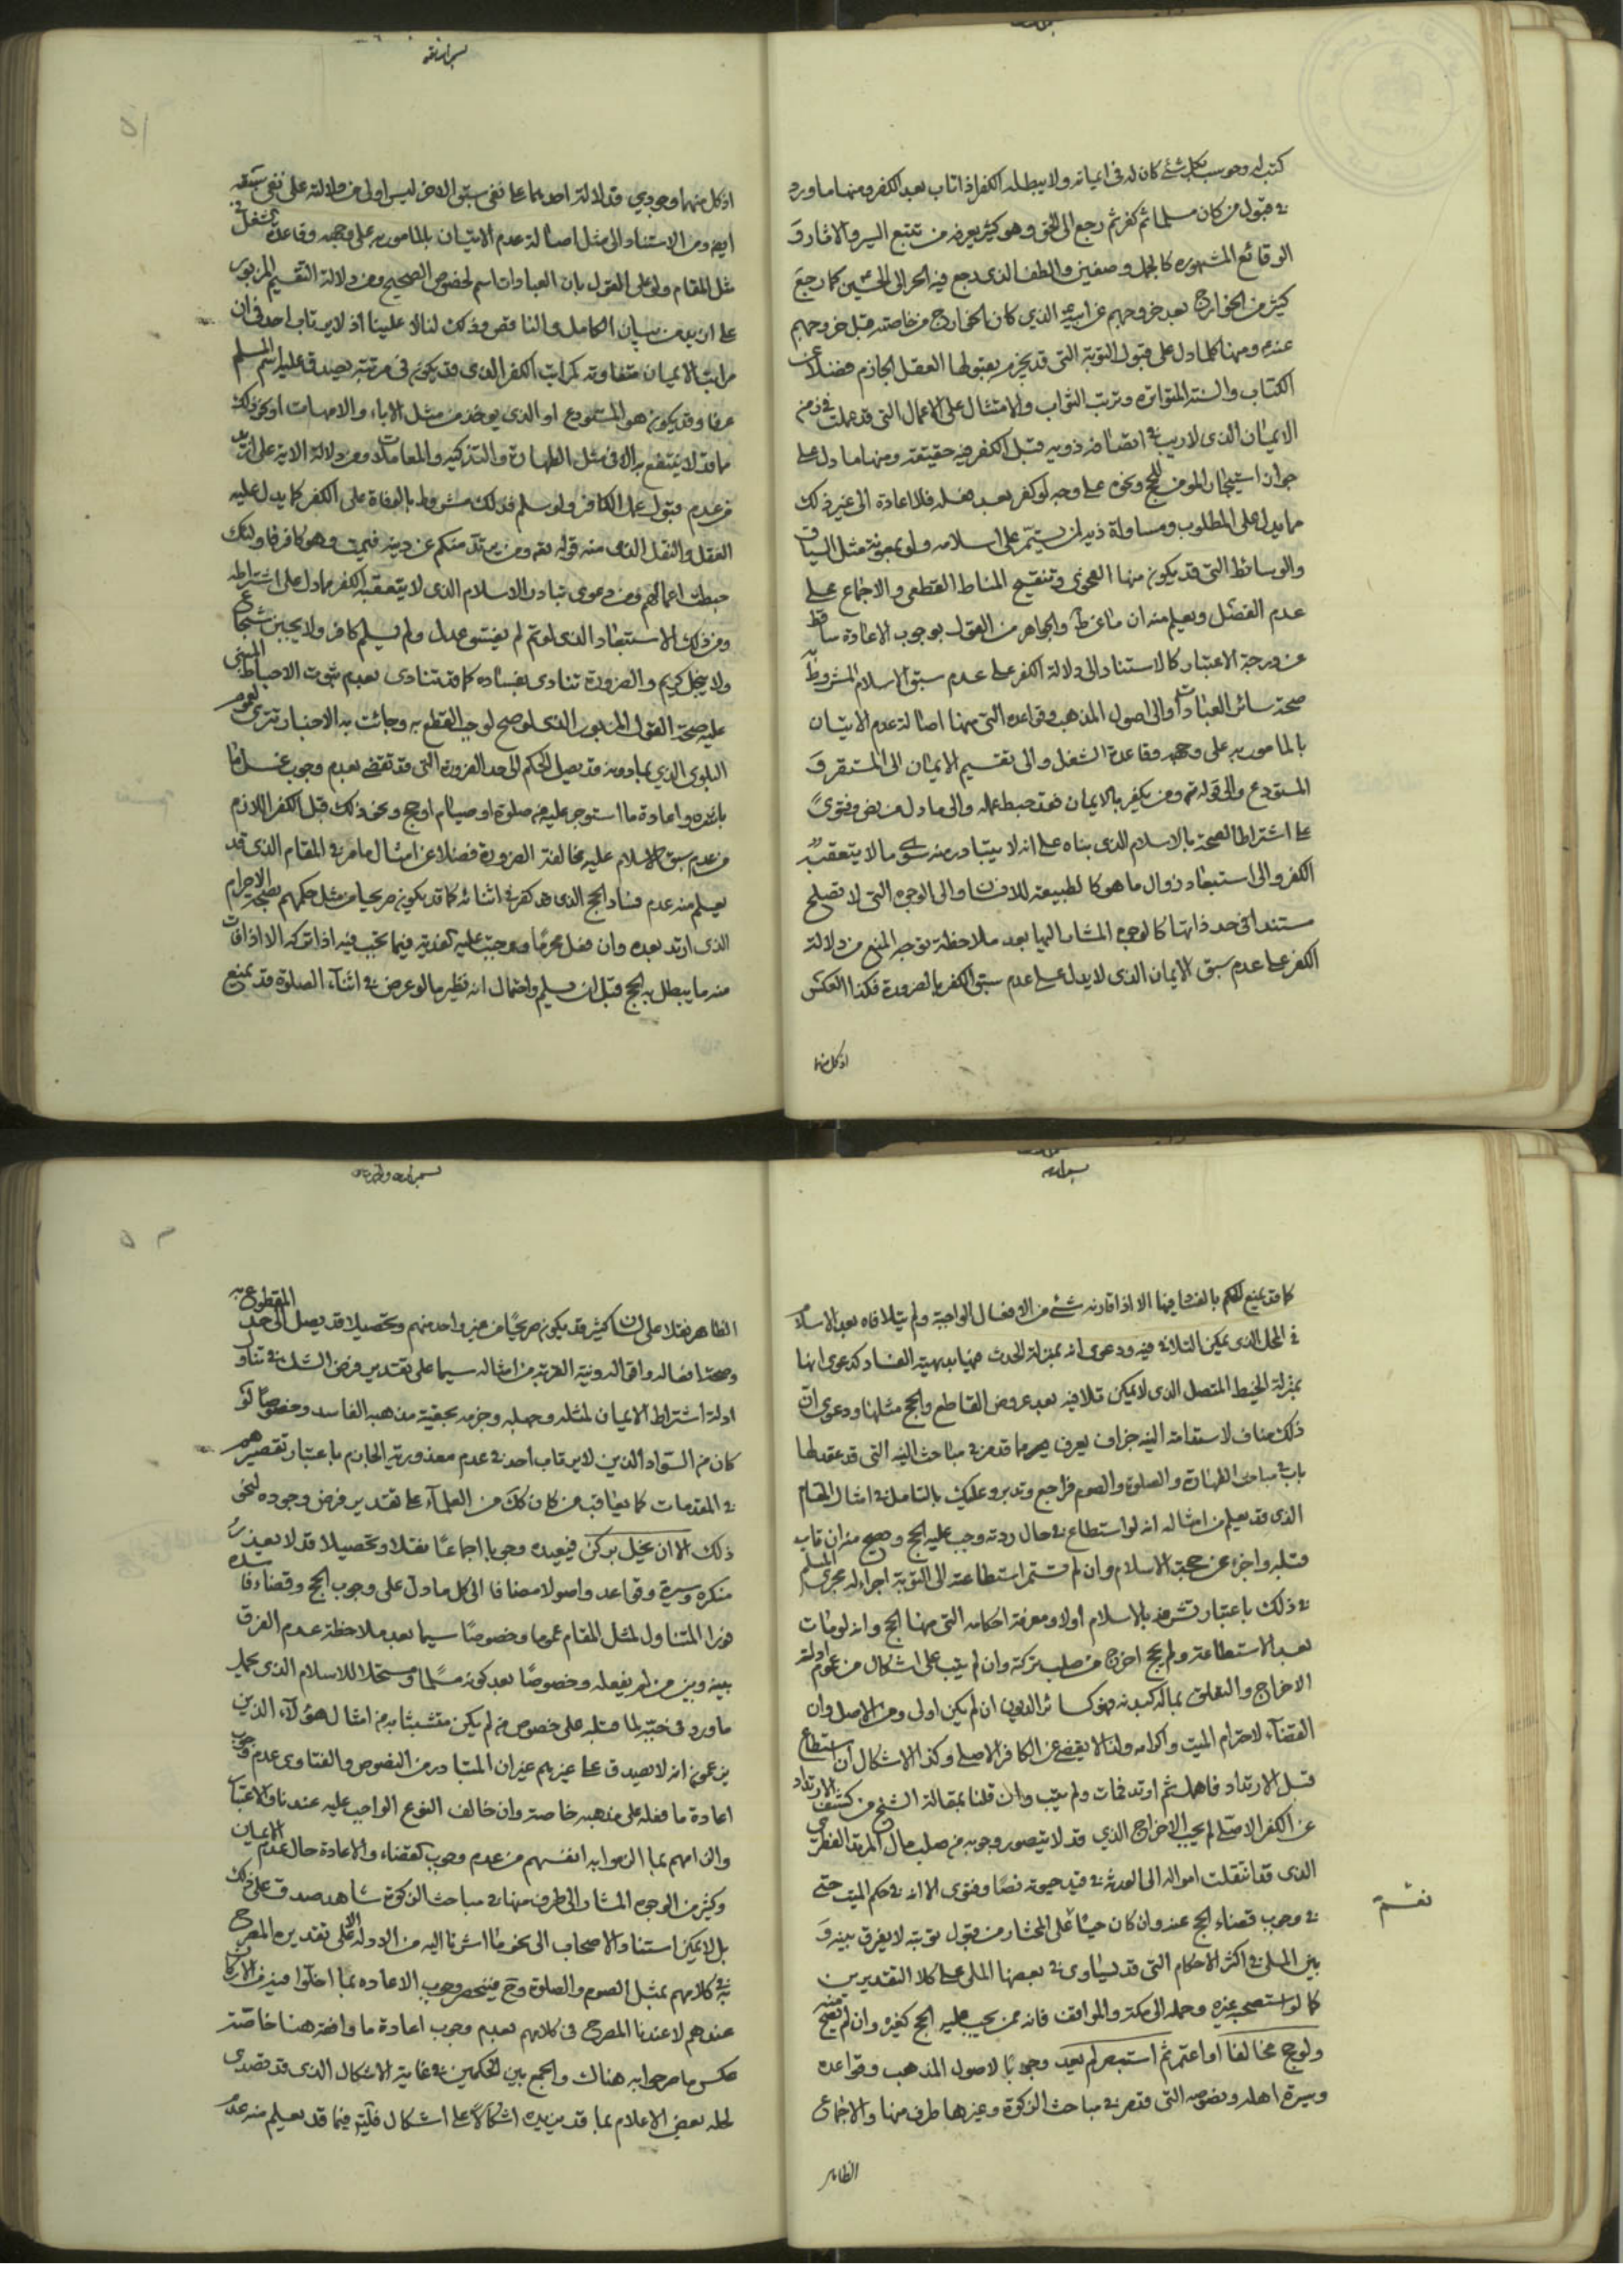 كتب له وحوسب بكل شئ كان له فى ايمانه ولا يبطله الكفر اذا تاب بعد الكفر ومنها ما ورد
فى قبول من كان مسلما ثم كفر ثم رجع الى الحق وهو كثير يعرفه من تتبع السير والاثار و
الوقائع المشهوره كالجمل وصفين والطف الذى رجع فيه الحر الى الحسين كما رجع
كثير من الخوارج بعد خروجهم عن الذي كان الخوارج من خاصته قبل خروجهم
عنه ومنها كلما دل على قبول التوبة التى قد يجزم بقبولها العقل الجازم فضلا عن
الكتاب والسنة المتواتره وترتب الثواب والامتثال على الاعمال التى قد عملت فى زمن
الايمان الذى لا ريب فى اتصاف ذويه قبل الكفر فيه حقيقته ومنها ما دل على
جواز استيجار المومن للحج ونحوه على وجه لو كفر بعد فعله فلا اعادة الى غير ذلك
مما يدل على المطلوب ومساواة ذيه لمن يستمر على اسلامه ولو بمعونة مثل السياق
والوسائط التى قد يكون منها الفحوى وتنقيح المناط القطعى والاجماع على
عدم الفصل ويعلم منه ان ما عن ط والجواهر من القول بوجوب الاعادة ساقط
عن درجة الاعتبار كالاستناد الى دلالة الكفر على عدم سبق الاسلام المشروط به
صحة سائر العبادات او الى اصول المذهب وقواعده التى منها اصالة عدم الاتيان
بالمامور به على وجهه وقاعدة الشغل والى تقسيم الايمان الى المستقر و
المستودع والى قوله تع ومن يكفر بالايمان فقد حبط عمله والى ما دل من نص وفتوى
على اشتراط الصحة بالاسلام الذى بناه على انه لا يتبادر منه سوى ما لا يتعقبه
الكفر والى استبعاد زوال ما هو كالطبيعة للانسان والى الوجوه التى لا تصلح
مستندا فى حد ذاتها كالوجوه المشار اليها بعد ملاحظة توجه المنع من دلالة
الكفر على عدم سبق الايمان الذى لا يدل على عدم سبق الكفر بالضرورة فكذا العكس
اذ كل منها
اذ كل منها وجودي فدلالة احدهما على نفى سبق الاخر ليس اولى من دلالته على نفى سبقه
ايه ومن الاستناد الى مثل اصالة عدم الاتيان بالمامور به على وجهه وقاعدة الشغل فى
مثل المقام ولو على القول بان العبادات اسم لخصوص الصحيح ومن دلالة التقسيم المزبور
على ازيد من بيان الكامل والناقص وذلك لنا لا علينا اذ لا يرتاب احد فى ان
مراتب الايمان متفاوتة كمراتب الكفر الذى قد يكون فى مرتبة يصدق عليه اسم المسلم
عرفا وقد يكون هو المستودع او الذى يوخذ من مثل الاباء والامهات او نحو ذلك
مما قد لا ينتفع به الا فى مثل الطهارة والتذكيه والمعاملات ومن دلالة الاية على ازيد
من عدم قبول عمل الكافر ولو سلم فذلك مشروط بالوفاة على الكفر كما يدل عليه
العقل والنقل الذى منه قوله تعه ومن يرتدد منكم عن دينه فيمت وهو كافر فاولئك
حبطت اعمالهم ومن دعوى تبادر الاسلام الذى لا يتعقبه الكفر مما دل على اشتراطه
ومن ذلك الاستبعاد الذى لو تم لم يفسق عدل ولم يسلم كافر ولا يجبن شجاع
ولا يبخل كريم والضرورة تنادى بفساده كما قد تنادى بعدم ثبوت الاحباط المبنى
عليه صحة القول المزبور الذى لو صح لوجب القطع به وجائت به الاخبار تترى لعموم
البلوى الذي بمادونه قد يصل الحكم الى حد الضرورة التى قد تقضى بعدم وجوب غسل ما
باشره واعادة ما استوجر عليه من صلوة او صيام او حج ونحو ذلك قبل الكفر اللازم
من عدم سبق الاسلام عليه مخالفة الضرورة فضلا عن امثال ما مر فى المقام الذى قد
يعلم منه عدم فساد الحج الذى قد كفر فى اثنائه كما قد يكون صريحا من مثل حكمهم بصحة الاحرام
الذى ارتد بعده وان فعل محرما ووجبت عليه كفارته فيما يجب فيه اذا تركه الا اذا فات
منه ما يبطل به الحج قبل ان يسلم واحتمال انه نظير ما لو عرض فى اثناء الصلوة قد يمنع
كما قد يمنع الحكم بالفساد فيها الا اذا قارنه شئ من الافعال الواجبة ولم يتلافاه بعد الاسلام
فى المحل الذى يمكن التلافى فيه ودعوى انه بمنزلة الحدث فيها بديهية الفساد كدعوى انها
بمنزلة الخيط المتصل الذى لا يمكن تلافيه بعد عروض القاطع والحج مثلها ودعوى ان
ذلك مناف لاستدامة النيه جزاف يعرف مما قد مر فى مباحث النيه التى قد عقد لها
باب فى مباحث الطهارة والصلوة والصوم فراجع وتدبر وعليك بالتامل فى امثال المقام
الذى قد يعلم من امثاله انه لو استطاع فى حال ردته وجب عليه الحج وصح منه ان تاب
قبله واجزء عن حجة الاسلام وان لم تستمر استطاعته الى التوبة اجراء له مجرى المسلم
فى ذلك باعتبار تشرفه بالاسلام اولا ومعرفة احكامه التى منها الحج وانه لو مات
بعد الاستطاعة ولم يحج اخرج من صلب تركته وان لم يتب على اشكال من عموم ادلة
الاخراج والتعلق بماله كبدنه فهو كسائر الديون ان لم يكن اولى ومن الاصل وان
القضاء لاحترام الميت واكرامه ولذا لا يقضى عن الكافر الاصلى وكذا الاشكال ان استطاع
قبل الارتداد فاهمل ثم ارتد فمات ولم يتب وان قلنا بمقالة الشيخ من كشف الارتداد
عن الكفر الاصلى لم يجب الاخراج الذي قد لا يتصور وجوبه من صلب مال المرتد الفطرى
الذى قد انتقلت امواله الى الورثة فى قيد حيوته نصا وفتوى الا انه فى حكم الميت حتى
فى وجوب قضاء الحج عنه وان كان حيا على المختار من قبول توبته لا يفرق بينه و
بين الملى فى اكثر الاحكام التى قد يساوى فى بعضها الملى على كلا التقديرين
كما لو استصحبه غيره وحمله الى مكة والمواقف فانه ممن يجب عليه الحج كغيره وان لم يصح منه
ولو حج مخالفا او اعتمر ثم استبصر لم يعد وجوبا لاصول المذهب وقواعده
وسيرة اهله ونصوصه التى قد مر فى مباحث الزكوة وغيرها طرف منها والاجماع
الظاهر
نعم
الظاهر نقلا على لسان كثير قد يكون صريحا من غير واحد منهم وتحصيلا قد يصل الى حد المقطوع به
وصحة افعاله واقواله ونية القربة من امثاله سيما على تقدير فرض الشك فى تناول
ادلة اشتراط الايمان لمثله وجهله وجزمه بحقية مذهبه الفاسد وخصوصا لو
كان من السواد الذين لا يرتاب احد فى عدم معذورية الجازم باعتبار تقصيرهم
فى المقدمات كما يعاقب من كان كك من العلماء على تقدير فرض وجوده لنحو
ذلك الا ان يخل بركن فيعيده وجوبا اجماعا نقلا وتحصيلا قد لا يعذر
منكره وسيرة وقواعد واصولا مضافا الى كل ما دل على وجوب الحج وقضاء فاسده
فورا المتناول لمثل المقام عموما وخصوصا سيما بعد ملاحظة عدم الفرق
بينه وبين من لم يفعله وخصوصا بعد كونه مسلما ومستحلا للاسلام الذى يحمل
ما ورد فى جبه لما قبله على خصوص من لم يكن متشبثا به من امثال هؤلآء الذين
يزعمون انه لا يصدق على غيرهم غير ان المتبادر من النصوص والفتاوى عدم وجوب
اعادة ما فعله على مذهبه خاصة وان خالف النوع الواجب عليه عندنا والاعتبار
والزامهم بما الزموا به انفسهم من عدم وجوب القضاء والاعادة حال عدم الايمان
وكثير من الوجوه المشار الى طرف منها فى مباحث الزكوة شاهد صدق على ذلك
بل لا يمكن استناد الاصحاب الى نحو ما اشرنا اليه من الادلة الا على تقديره المصرح
به فى كلامهم بمثل الصوم والصلوة وح فينحصر وجوب الاعاده بما اخلوا فيه من الاركان
عندهم لا عندنا المصرح فى كلامهم بعدم وجوب اعادة ما وافقه هنا خاصة
عكس ما صرحوا به هناك والجمع بين الحكمين فى غاية الاشكال الذى قد تصدى
لحله بعض الاعلام بما قد يزيده اشكالا على اشكال فليته فيما قد يعلم منه عدم